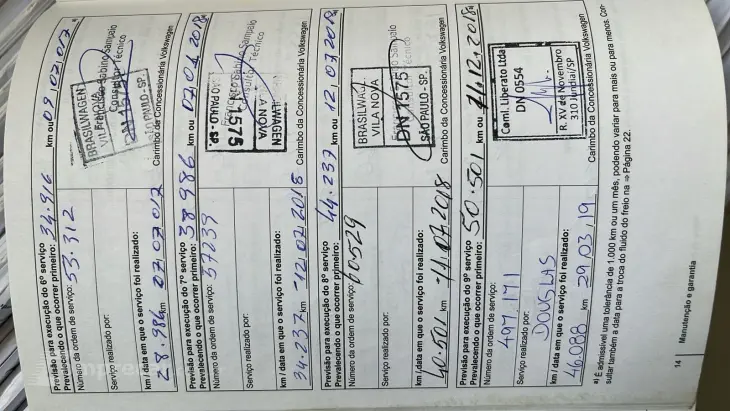 Previsão para execução do 6º serviço
Prevalecendo o que ocorrer primeiro: 34.916 km ou 09/07/07 a)
Número da ordem de serviço: 53.312
Serviço realizado por:
km / data em que o serviço foi realizado:
28.986 km 07/07/017
BRASILWAGEN
VILA NOVA
SÃO PAULO - SP.
Francisco Sabino Sampaio
Consultor Técnico
Carimbo da Concessionária Volkswagen
Previsão para execução do 7º serviço
Prevalecendo o que ocorrer primeiro: 38.986 km ou 07.07.2018 a)
Número da ordem de serviço: 57239
Serviço realizado por:
km / data em que o serviço foi realizado:
34.237 km 12/07/2018
1575
Carimbo da Concessionária Volkswagen
Previsão para execução do 8º serviço
Prevalecendo o que ocorrer primeiro: 44.237 km ou 12.07.2018 a)
Número da ordem de serviço: 60529
Serviço realizado por:
km / data em que o serviço foi realizado:
40.501 km 11/07/2018
BRASILWAGEN
VILA NOVA
DN 1575
SÃO PAULO - SP.
Carimbo da Concessionária Volkswagen
Previsão para execução do 9º serviço
Prevalecendo o que ocorrer primeiro: 50.501 km ou 11.12.2018 a)
Número da ordem de serviço:
497.171
Serviço realizado por:
DOUGLAS
km / data em que o serviço foi realizado:
46.088 km 29,03,19
Caml. Liberato Ltda
DN 0554
R. XV de Novembro
310 Jundiaí/SP
Carimbo da Concessionária Volkswagen
a) É admissível uma tolerância de 1.000 km ou um mês, podendo variar para mais ou para menos. Con-
sultar também a data para a troca do fluido do freio na ⇒ Página 22.
14 Manutenção e garantia